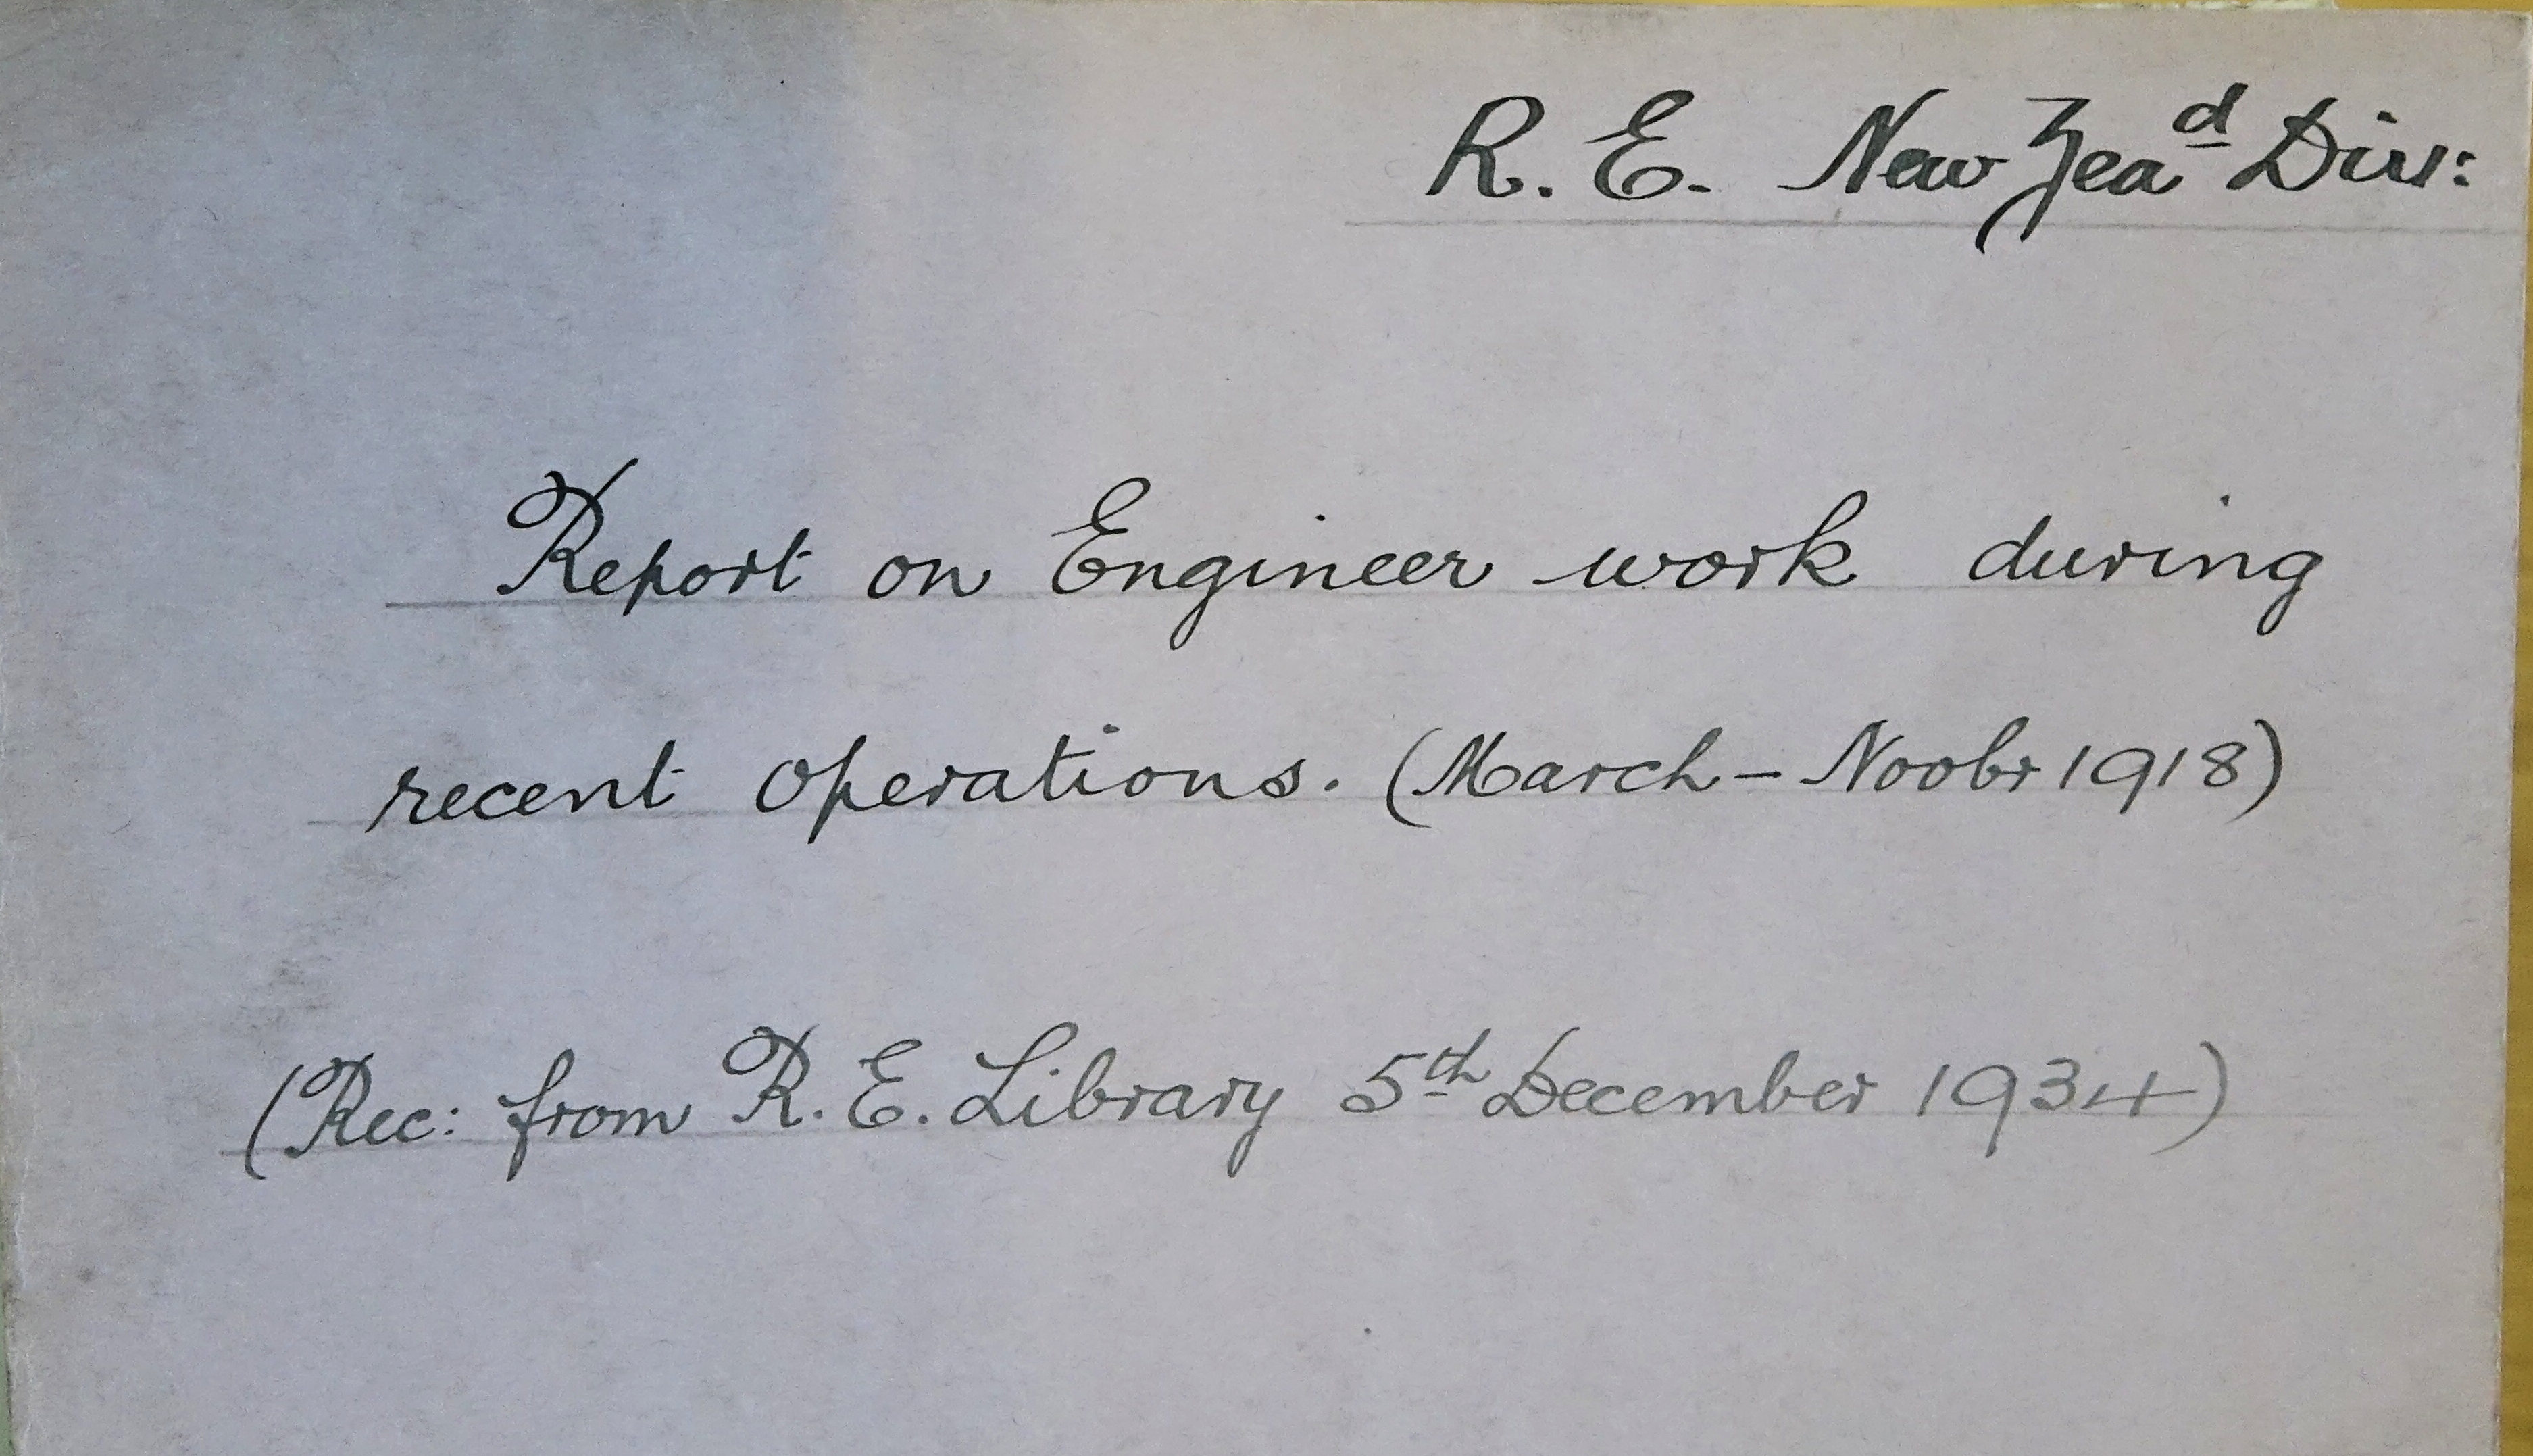 R. E. New Zeaᵈ Div:
Report on Engineer work during
recent operations. (March – Novbr 1918)
(Rec: from R. E. Library 5th December 1934)